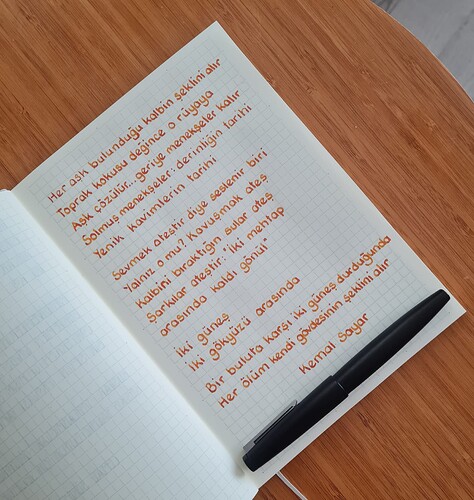 Her aşk bulunduğu kalbin şeklini alır
Toprak kokusu değince o rüyaya
Aşk çözülür...geriye menekşeler kalır
Solmuş menekşeler: derinliğin tarihi
Yenik kavimlerin tarihi
Sevmek ateştir diye seslenir biri
Yalnız o mu? Kavuşmak ateş
Kalbini bıraktığın sular ateş
Şarkılar ateştir: "iki mehtap
arasında kaldı gönül"
İki güneş
İki gökyüzü arasında
Bir buluta karşı iki güneş durduğunda
Her ölüm kendi gövdesinin şeklini alır
Kemal Sayar